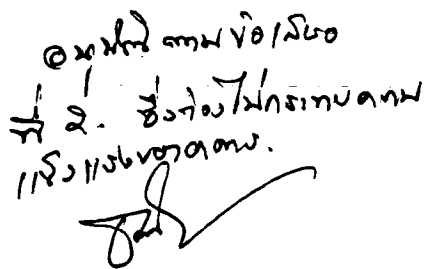 อนุมัติ ตามข้อเสนอ
ที่ 2. ซึ่งต้องไม่กระทบความ
แข็งแรงของอาคาร.